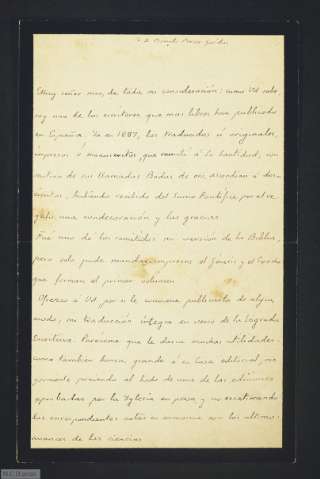 Muy señor mio, de toda mi consideración: como Vd sabe
soy uno de los escritores que mas libros han publicado
en España. Ya en 1887, los traducidos ú originales,
impresos ó manuscritos, que remití á la Santidad, con
motivo de sus llamadas Bodas de oro, ascendian á dos-
cientos, habiendo recibido del Sumo Pontífice por el re-
galo una condecoración y las gracias.
Fué uno de los remitidos mi versión de la Biblia,
pero solo pude mandar impresos el Génesis y el Exodo
que forman el primer volumen.
Ofrezco á Vd por si le conviene publicarla de algun
modo, mi traducción íntegra en verso de la Sagrada
Escritura. Pareceme que le daria muchas utilidades
como tambien honra, grande á su Casa editorial,
poniendo al lado de una de las ediciones
aprobadas por la Iglesia en prosa y
las correspondientes notas en armonia con los ultimos
avances de las ciencias